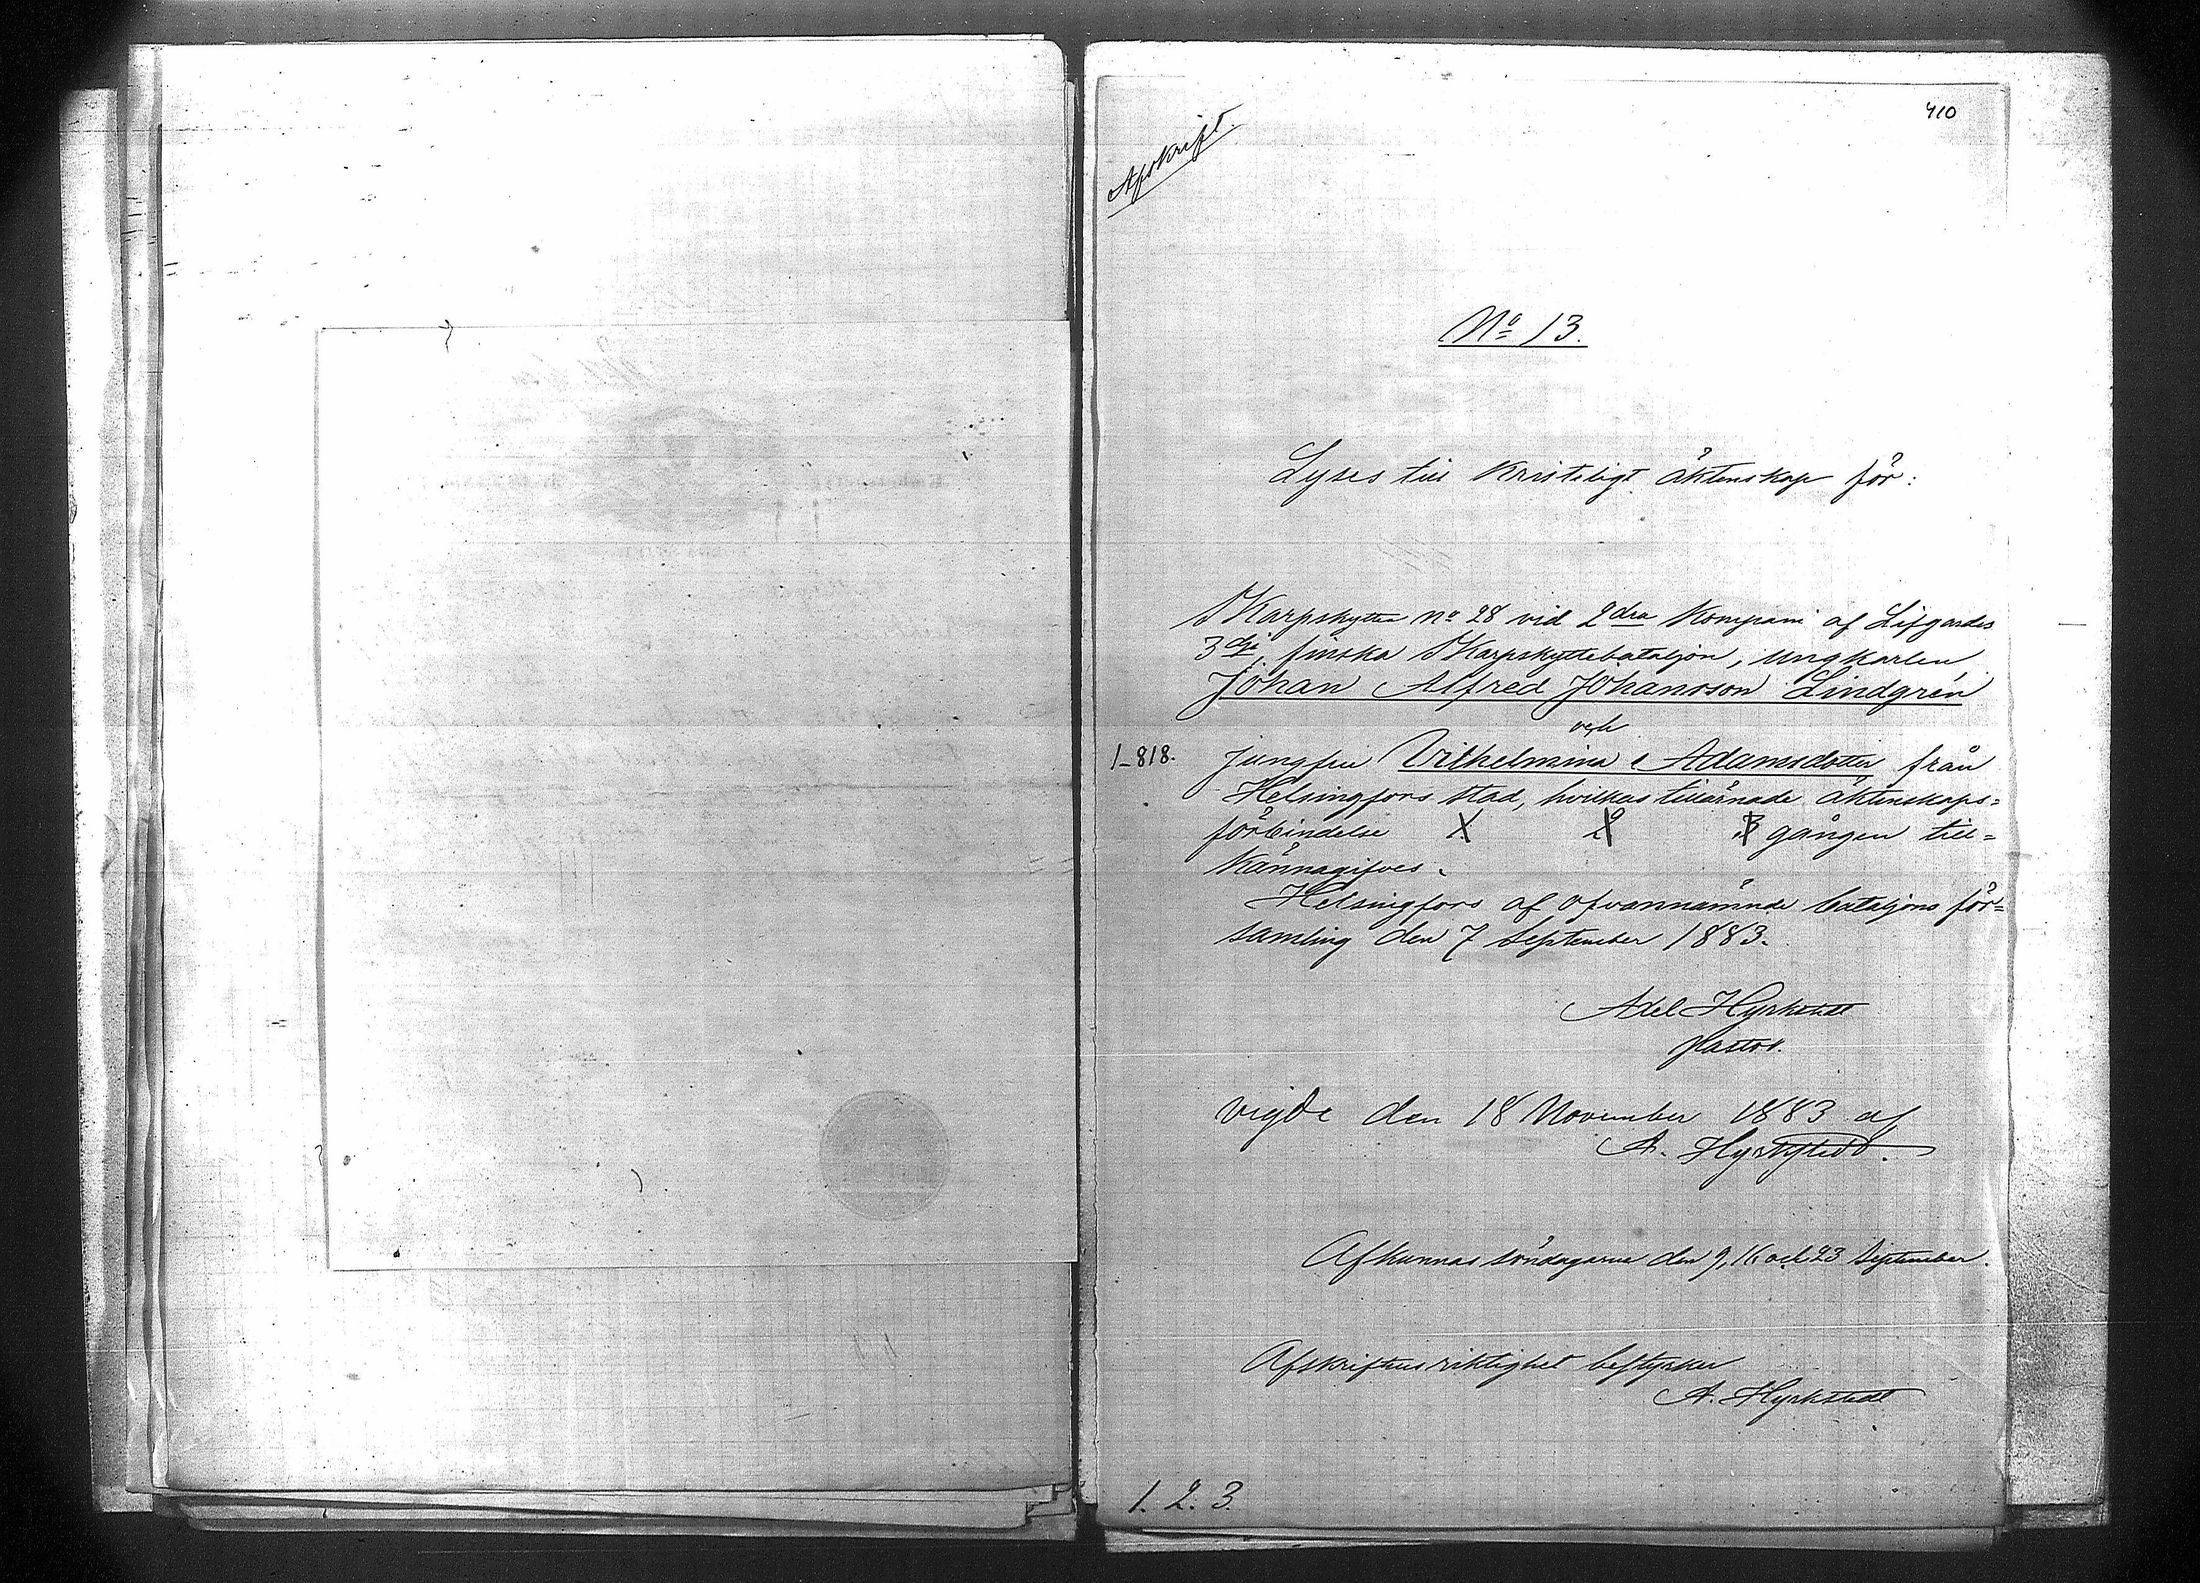 410
Afskrift.
No 13.
Lyses till kristeligt äktenskap för:
Skarpskytten No 28 vid 2dra Kompani af Lifgardes
3dje finska Skarpskyttebataljon, ungkarlen
Johan Alfred Johansson Lindgrén
och
1-818. jungfru Vilhelmina Adamsdotter från
Helsingfors stad, hvilkas tillärnade äktenskaps=
förbindelse 1 2 3 gången till=
kännagifves.
Helsingfors af ofvannämnde bataljons för=
samling den 7 September 1883.
Axel Hyrkstedt
Pastor.
Vigde den 18 November 1883 af
A. Hyrkstedt.
Afkunnas söndagarna den 9, 16 och 23 September.
Afskriftens riktighet bestyrker
A. Hyrkstedt
1. 2. 3.